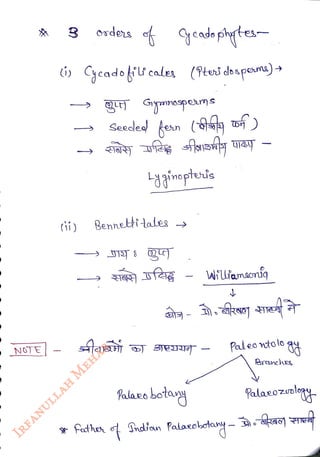 * 3 orders of Cycadophytes -
(i) Cycadofilicales (Pteridosperms) →
→ लुप्त Gymnosperms
→ Seeded fern (बीजीय फर्न)
→ सबसे प्रसिद्ध जीवाश्मीय पादप -
Lyginopteris
(ii) Bennettitales →
→ प्रायः लुप्त
→ सबसे प्रसिद्ध - Williamsonia
↓
खोज - प्रो. बीरबल साहनी ने
NOTE - जीवाश्मों का अध्ययन - Paleontology
Branches
Palaeobotany Palaeozoology
* Father of Indian Palaeobotany - प्रो. बीरबल साहनी
IRFANULLAH